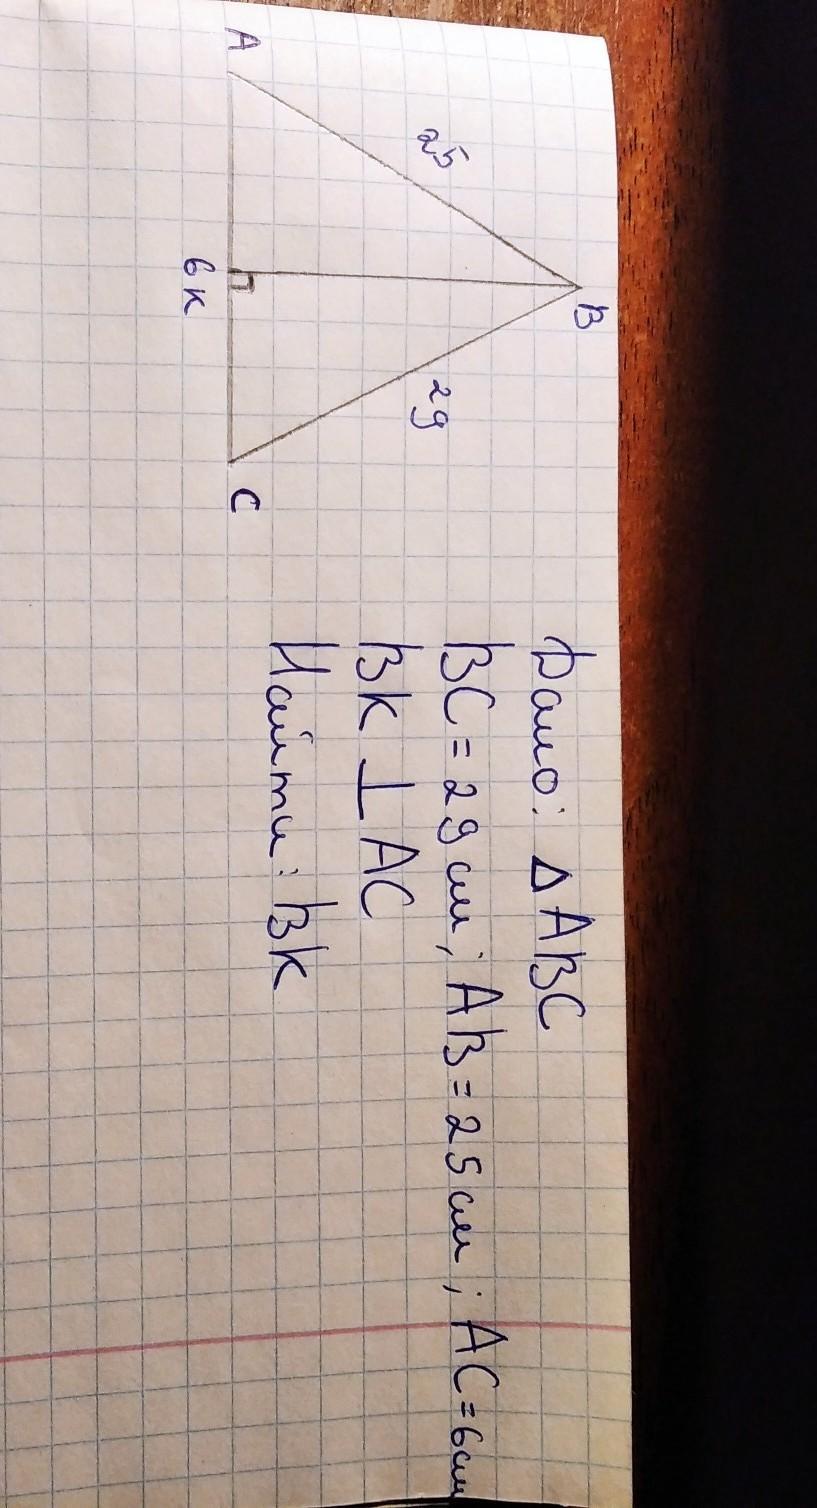 B
25
29
A
6 K
C
Дано: △ ABC
BC = 29 см ; AB = 25 см ; AC = 6 см
BK ⊥ AC
Найти: BK